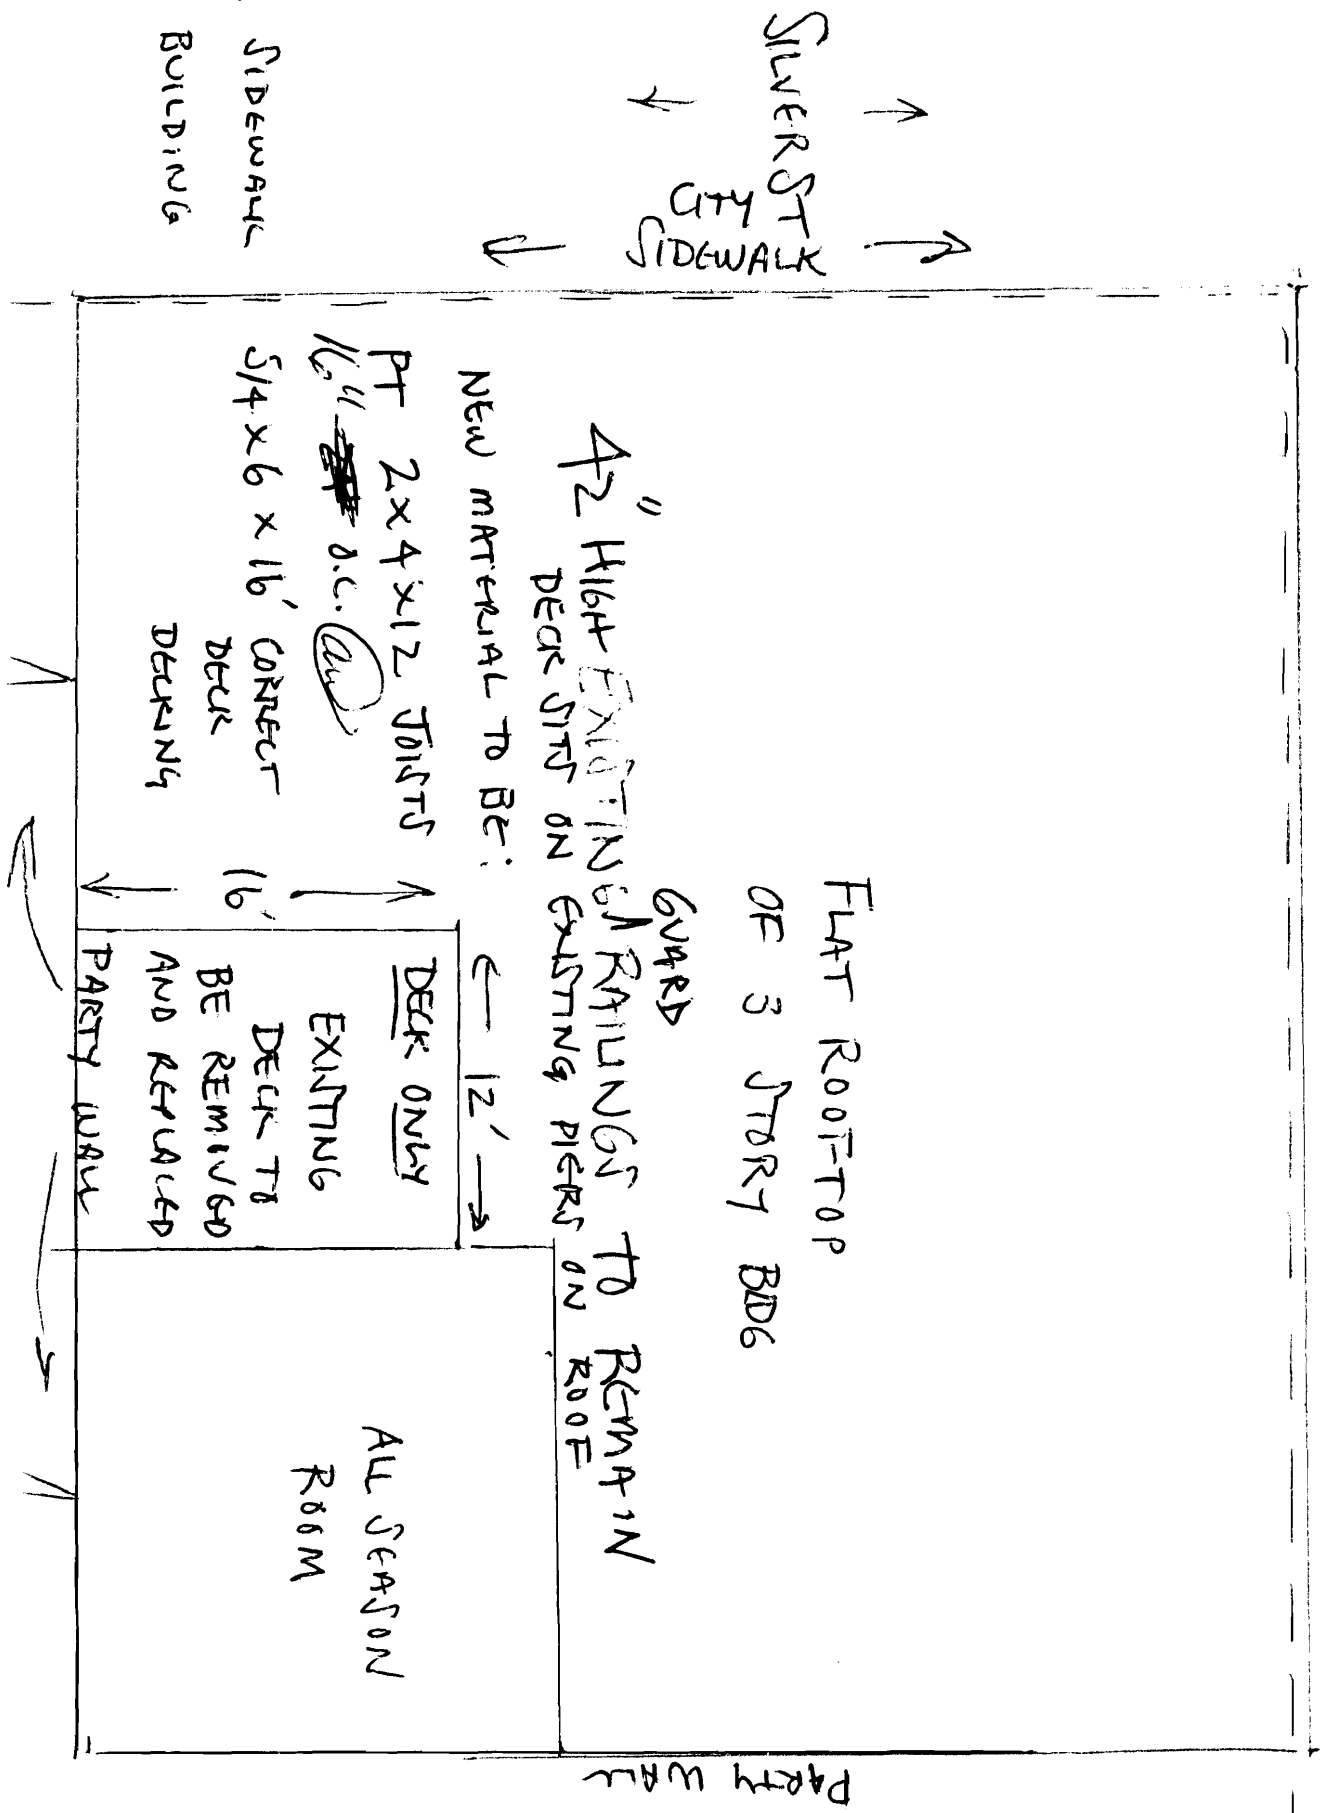 SILVER ST
CITY
SIDEWALK
SIDEWALK
BUILDING
FLAT ROOFTOP
OF 3 STORY BLDG
GUARD
42" HIGH EXISTING RAILINGS TO REMAIN
DECK SITS ON EXISTING PIERS ON ROOF
NEW MATERIAL TO BE:
PT 2x4x12 JOISTS
16" O.C.
5/4 x 6 x 16' CORRECT
DECK
DECKING
16'
12'
DECK ONLY
EXISTING
DECK TO
BE REMOVED
AND REPLACED
PARTY WALL
ALL SEASON
ROOM
PARTY WALL